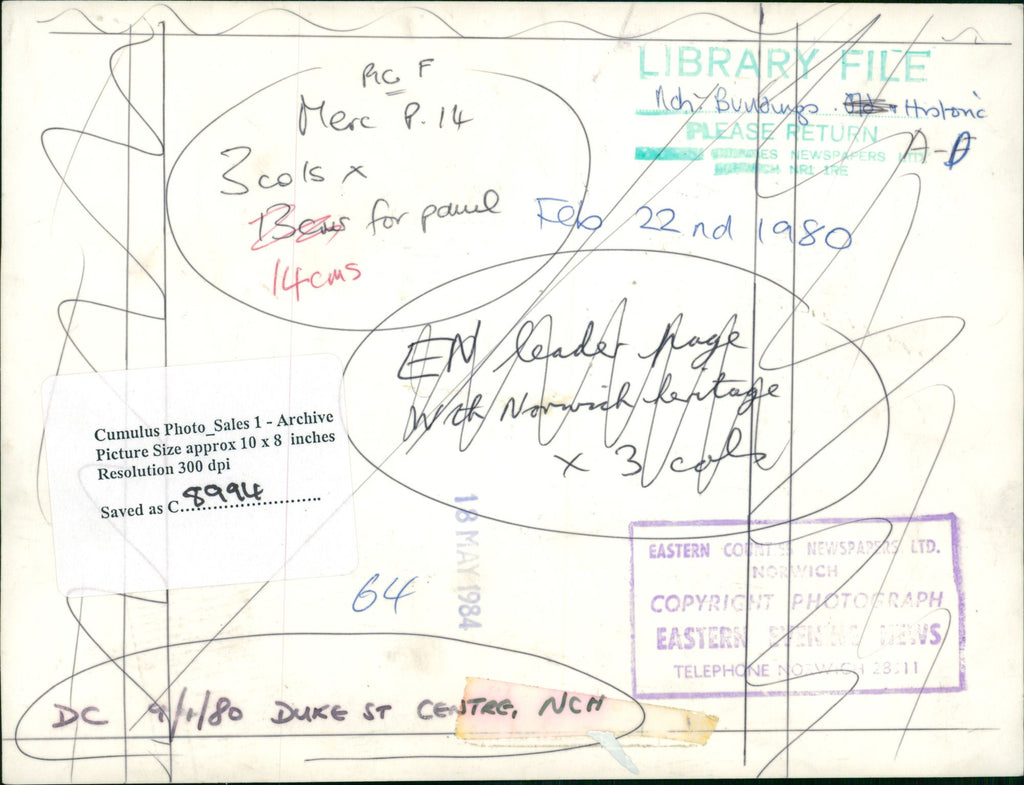 LIBRARY FILE
Nch. Buildings. Historic
PLEASE RETURN
A-D
COUNTIES NEWSPAPERS LTD
NORWICH NR1 1RE
F
Merc P.14
3 cols x
for panel
14cms
Feb 22nd 1980
EN leader page
With Norwich heritage
x 3 cols
Cumulus Photo_Sales 1 - Archive
Picture Size approx 10 x 8 inches
Resolution 300 dpi
Saved as C 8994
18 MAY 1984
64
EASTERN COUNTIES NEWSPAPERS LTD.
NORWICH
COPYRIGHT PHOTOGRAPH
EASTERN EVENING NEWS
TELEPHONE NORWICH 28311
DC 9/1/80 DUKE ST CENTRE, NCH